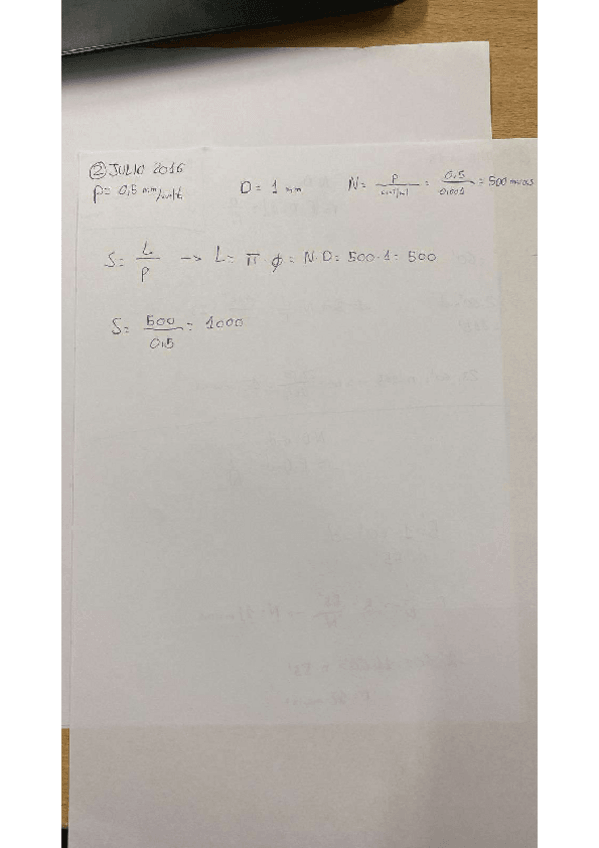 ② JULIO 2016
p= 0,5 mm/vuelta D= 1 mm N= p = 0,5/0,001 = 500 marcas
S= L/p → L= π · ϕ = N·D= 500·1= 500
S= 500/0,5 = 1000